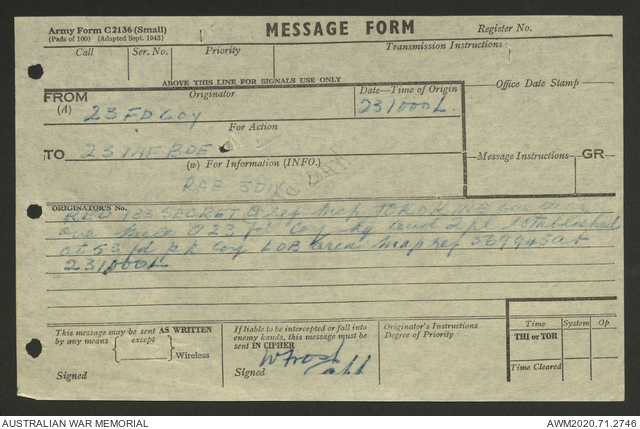 Army Form C2136 (Small)
(Pads of 100) (Adapted Sept. 1943)
MESSAGE FORM
Register No.
Call
Ser. No.
Priority
Transmission Instructions
ABOVE THIS LINE FOR SIGNALS USE ONLY
FROM
(A)
Originator
Date—Time of Origin
Office Date Stamp
23 FD COY
231000L
For Action
TO
23 INF BDE
(W) For Information (INFO.)
Message Instructions
GR
RAE 3 DIV
ORIGINATOR'S No.
SECRET ref map TOROKINA
one mile 23 fd coy hq and 2 pl established
at 53 fd pk coy LOB area map ref 369945 at
231000L
This message may be sent AS WRITTEN
by any means except
Wireless
Signed
If liable to be intercepted or fall into
enemy hands, this message must be
sent IN CIPHER
Signed
Originator's Instructions
Degree of Priority
Time
System
Op
THI or TOR
Time Cleared
AUSTRALIAN WAR MEMORIAL
AWM2020.71.2746